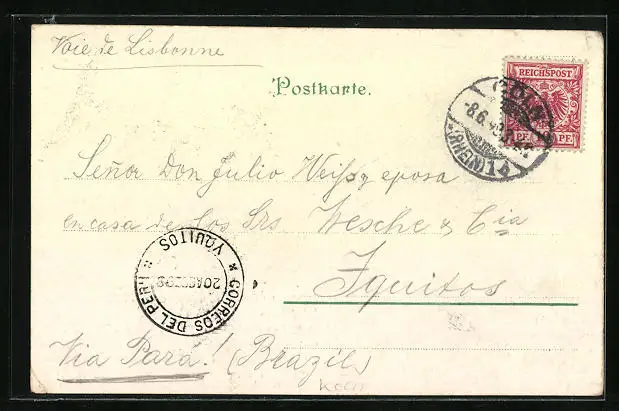 Voie de Lisbonne
Postkarte.
REICHSPOST
CÖLN
8.6.
(RHEIN) 14
Señor Don Julio Weiss y eposa
en casa de los Srs. Wesche & Cia
Iquitos
CORREOS DEL PERU
YQUITOS
Via Pará! (Brazil)
KÖLN